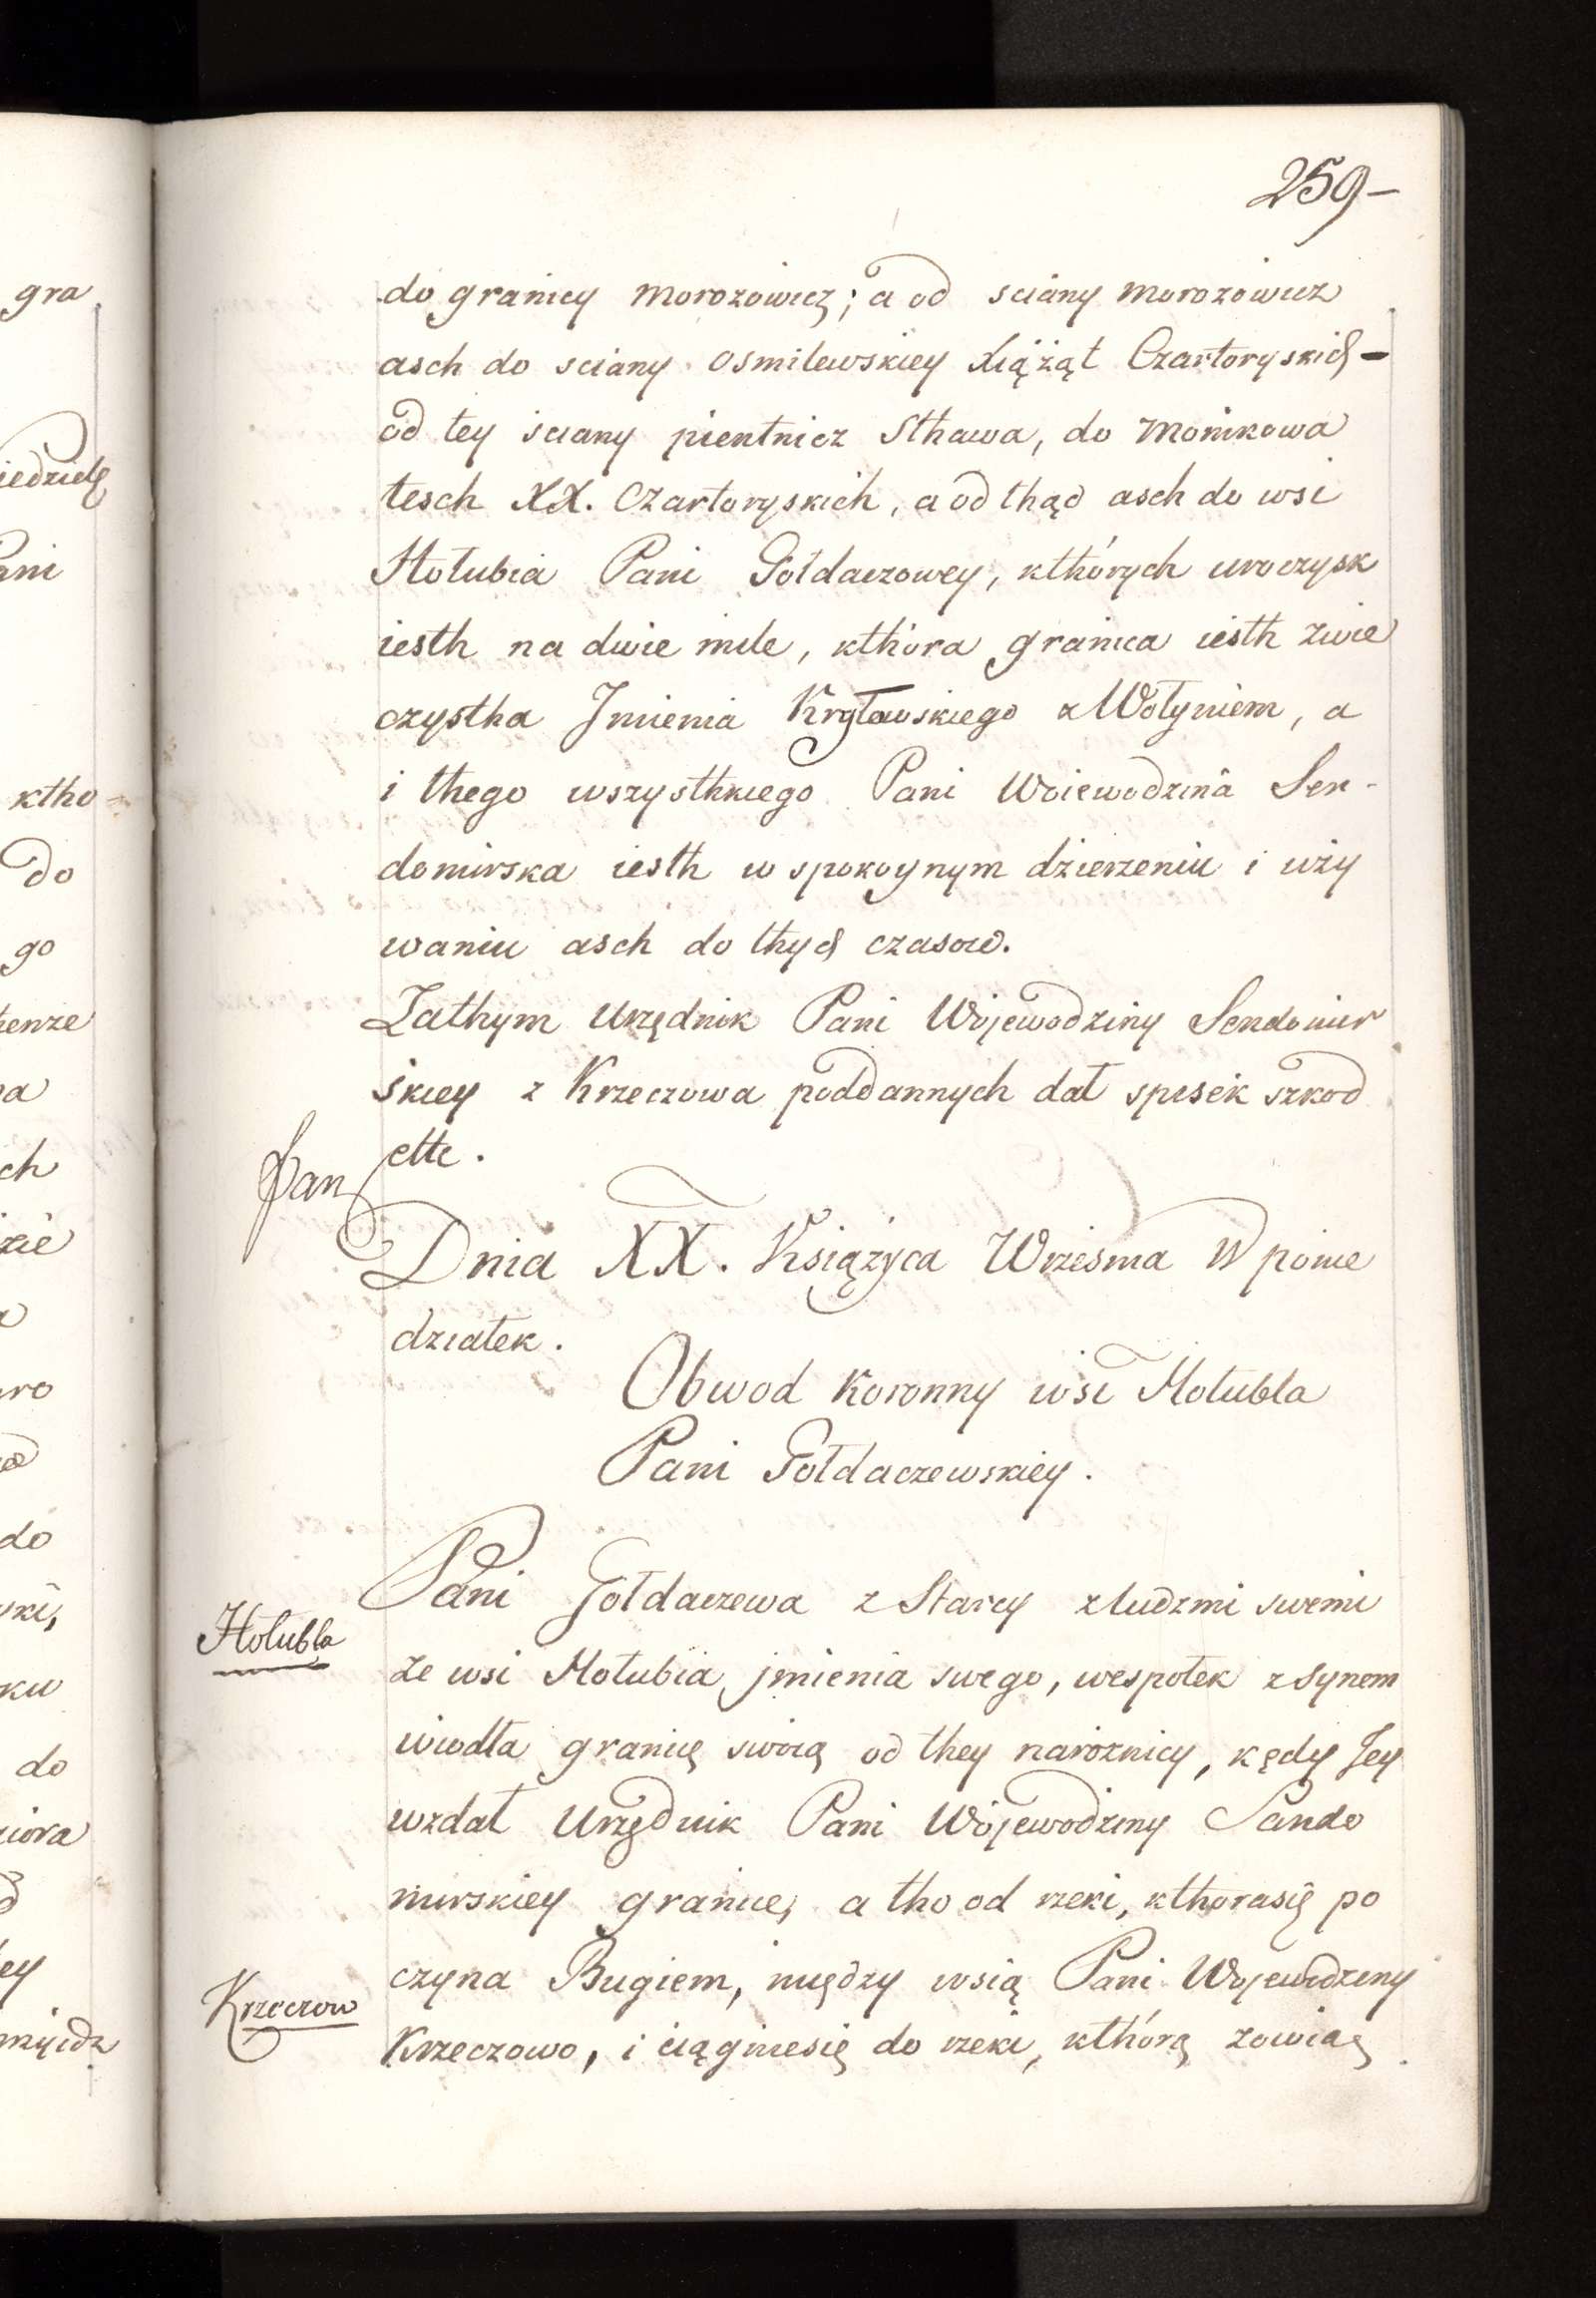 259-
do granicy Morozowicz; a od sciany Morozowicz
asch do sciany Osmilewskiey Xiążąt Czartoryskich -
od tey sciany pientnicz Sthawa, do Monikowa
tesch XX. Czartoryskich, a od thąd asch do wsi
Hołubia Pani Gołdaczowey, kthórych uroczysk
iesth na dwie mile, kthora granica iesth zwie
czystha Jmienia Kryłowskiego z Wołyniem, a
i thego wszysthkiego Pani Woiewodzina Sen-
domirska iesth w spokoynym dzierzeniu i uży
waniu asch do thych czasow.
Zathym Urzędnik Pani Wojewodziny Sendomir
skiey z Krzeczowa poddannych dał spisek szkod
ette.
Pan
Dnia XX. Księżyca Wrzesnia w ponie
działek.
Obwod Koronny wsi Hołubla
Pani Gołdaczewskiey.
Pani Gołdaczewa z Starcy z ludzmi swemi
Holubla
ze wsi Hołubia jmienia swego, wespołek z synem
wiodła granicę swoią od they naroznicy, kędy Jey
wzdał Urzędnik Pani Wojewodziny Sando
mirskiey granice, a tho od rzeki, kthorasię po
czyna Bugiem, między wsią Pani Wojewodziny
Krzeczow
Krzeczowo, i ciągniesię do rzeki, kthórą zowią
gra
iedzielę
Pani
ktho
do
go
a
ch
zie
ro
do
ku
do
ey